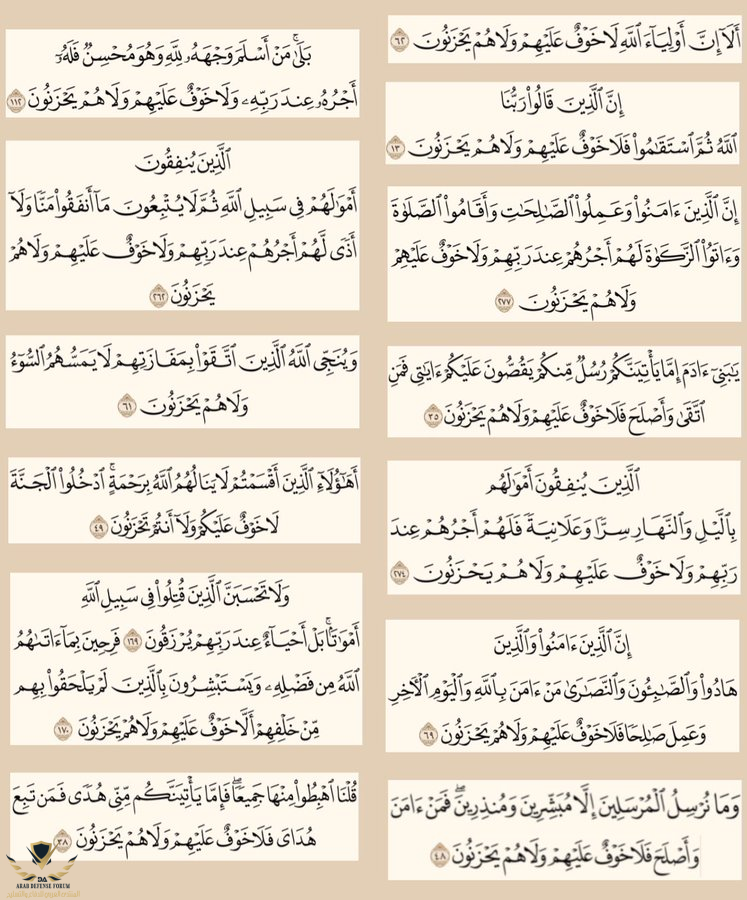 أَلَآ إِنَّ أَوْلِيَآءَ ٱللَّهِ لَا خَوْفٌ عَلَيْهِمْ وَلَا هُمْ يَحْزَنُونَ ٦٢
إِنَّ ٱلَّذِينَ قَالُوا۟ رَبُّنَا
ٱللَّهُ ثُمَّ ٱسْتَقَٰمُوا۟ فَلَا خَوْفٌ عَلَيْهِمْ وَلَا هُمْ يَحْزَنُونَ ١٣
إِنَّ ٱلَّذِينَ ءَامَنُوا۟ وَعَمِلُوا۟ ٱلصَّٰلِحَٰتِ وَأَقَامُوا۟ ٱلصَّلَوٰةَ
وَءَاتَوُا۟ ٱلزَّكَوٰةَ لَهُمْ أَجْرُهُمْ عِندَ رَبِّهِمْ وَلَا خَوْفٌ عَلَيْهِمْ
وَلَا هُمْ يَحْزَنُونَ ٢٧٧
يَٰبَنِىٓ ءَادَمَ إِمَّا يَأْتِيَنَّكُمْ رُسُلٌ مِّنكُمْ يَقُصُّونَ عَلَيْكُمْ ءَايَٰتِى فَمَنِ
ٱتَّقَىٰ وَأَصْلَحَ فَلَا خَوْفٌ عَلَيْهِمْ وَلَا هُمْ يَحْزَنُونَ ٣٥
ٱلَّذِينَ يُنفِقُونَ أَمْوَٰلَهُم
بِٱلَّيْلِ وَٱلنَّهَارِ سِرًّا وَعَلَانِيَةً فَلَهُمْ أَجْرُهُمْ عِندَ
رَبِّهِمْ وَلَا خَوْفٌ عَلَيْهِمْ وَلَا هُمْ يَحْزَنُونَ ٢٧٤
إِنَّ ٱلَّذِينَ ءَامَنُوا۟ وَٱلَّذِينَ
هَادُوا۟ وَٱلصَّٰبِـُٔونَ وَٱلنَّصَٰرَىٰ مَنْ ءَامَنَ بِٱللَّهِ وَٱلْيَوْمِ ٱلْـَٔاخِرِ
وَعَمِلَ صَٰلِحًا فَلَا خَوْفٌ عَلَيْهِمْ وَلَا هُمْ يَحْزَنُونَ ٦٩
وَمَا نُرْسِلُ ٱلْمُرْسَلِينَ إِلَّا مُبَشِّرِينَ وَمُنذِرِينَ ۖ فَمَنْ ءَامَنَ
وَأَصْلَحَ فَلَا خَوْفٌ عَلَيْهِمْ وَلَا هُمْ يَحْزَنُونَ ٤٨
بَلَىٰ مَنْ أَسْلَمَ وَجْهَهُۥ لِلَّهِ وَهُوَ مُحْسِنٌ فَلَهُۥٓ
أَجْرُهُۥ عِندَ رَبِّهِۦ وَلَا خَوْفٌ عَلَيْهِمْ وَلَا هُمْ يَحْزَنُونَ ١١٢
ٱلَّذِينَ يُنفِقُونَ
أَمْوَٰلَهُمْ فِى سَبِيلِ ٱللَّهِ ثُمَّ لَا يُتْبِعُونَ مَآ أَنفَقُوا۟ مَنًّا وَلَآ
أَذًى لَّهُمْ أَجْرُهُمْ عِندَ رَبِّهِمْ وَلَا خَوْفٌ عَلَيْهِمْ وَلَا هُمْ
يَحْزَنُونَ ٢٦٢
وَيُنَجِّى ٱللَّهُ ٱلَّذِينَ ٱتَّقَوْا۟ بِمَفَازَتِهِمْ لَا يَمَسُّهُمُ ٱلسُّوٓءُ
وَلَا هُمْ يَحْزَنُونَ ٦١
أَهَٰٓؤُلَآءِ ٱلَّذِينَ أَقْسَمْتُمْ لَا يَنَالُهُمُ ٱللَّهُ بِرَحْمَةٍ ۚ ٱدْخُلُوا۟ ٱلْجَنَّةَ
لَا خَوْفٌ عَلَيْكُمْ وَلَآ أَنتُمْ تَحْزَنُونَ ٤٩
وَلَا تَحْسَبَنَّ ٱلَّذِينَ قُتِلُوا۟ فِى سَبِيلِ ٱللَّهِ
أَمْوَٰتًۢا ۚ بَلْ أَحْيَآءٌ عِندَ رَبِّهِمْ يُرْزَقُونَ ١٦٩ فَرِحِينَ بِمَآ ءَاتَىٰهُمُ
ٱللَّهُ مِن فَضْلِهِۦ وَيَسْتَبْشِرُونَ بِٱلَّذِينَ لَمْ يَلْحَقُوا۟ بِهِم
مِّنْ خَلْفِهِمْ أَلَّا خَوْفٌ عَلَيْهِمْ وَلَا هُمْ يَحْزَنُونَ ١٧٠
قُلْنَا ٱهْبِطُوا۟ مِنْهَا جَمِيعًا ۖ فَإِمَّا يَأْتِيَنَّكُم مِّنِّى هُدًى فَمَن تَبِعَ
هُدَاىَ فَلَا خَوْفٌ عَلَيْهِمْ وَلَا هُمْ يَحْزَنُونَ ٣٨
DA
ARAB DEFENSE FORUM